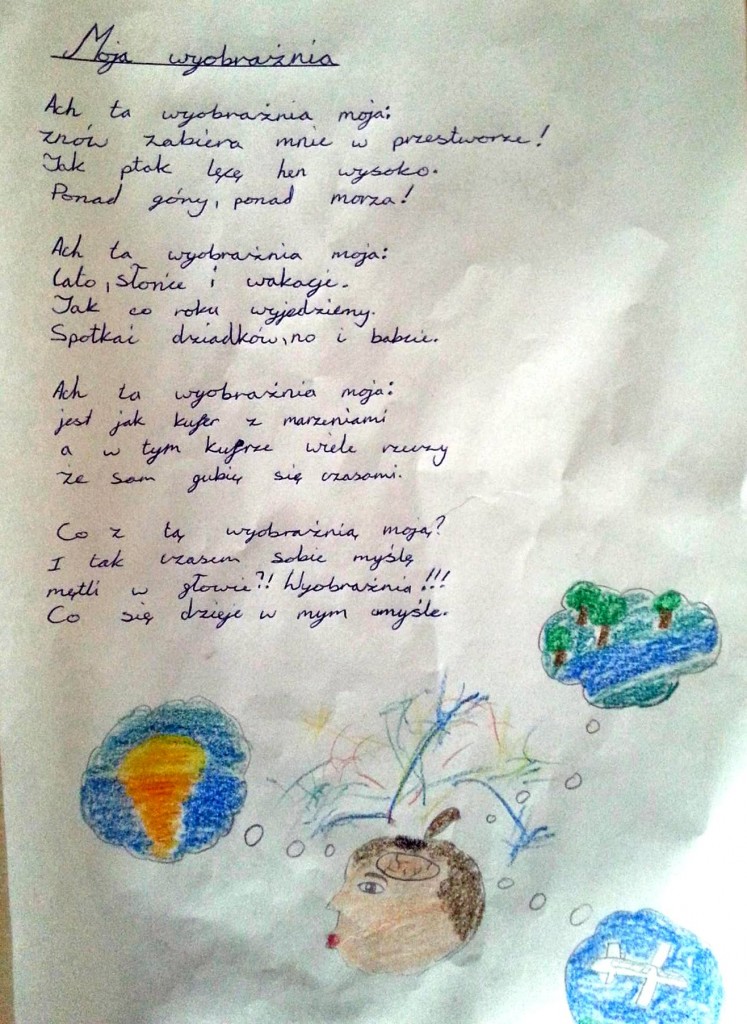 Moja wyobraźnia
Ach ta wyobraźnia moja:
znów zabiera mnie w przestworze!
Jak ptak lęcę hen wysoko.
Ponad góry, ponad morza!
Ach ta wyobraźnia moja:
Lato, słońce i wakacje.
Jak co roku wyjedziemy.
Spotkać dziadków, no i babcie.
Ach ta wyobraźnia moja:
jest jak kufer z marzeniami
a w tym kufrze wiele rzeczy
że sam gubię się czasami.
Co z tą wyobraźnią moją?
I tak czasem sobie myślę
mętli w głowie?! Wyobraźnia!!!
Co się dzieje w mym umyśle.